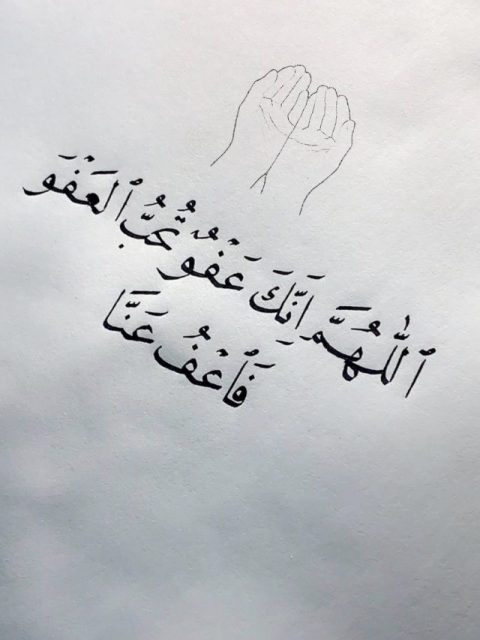 ٱللّٰهُمَّ اِنَّكَ عَفُوٌّ تُحِبُّ ٱلعَفْوَ
فَٱعْفُ عَنَّا